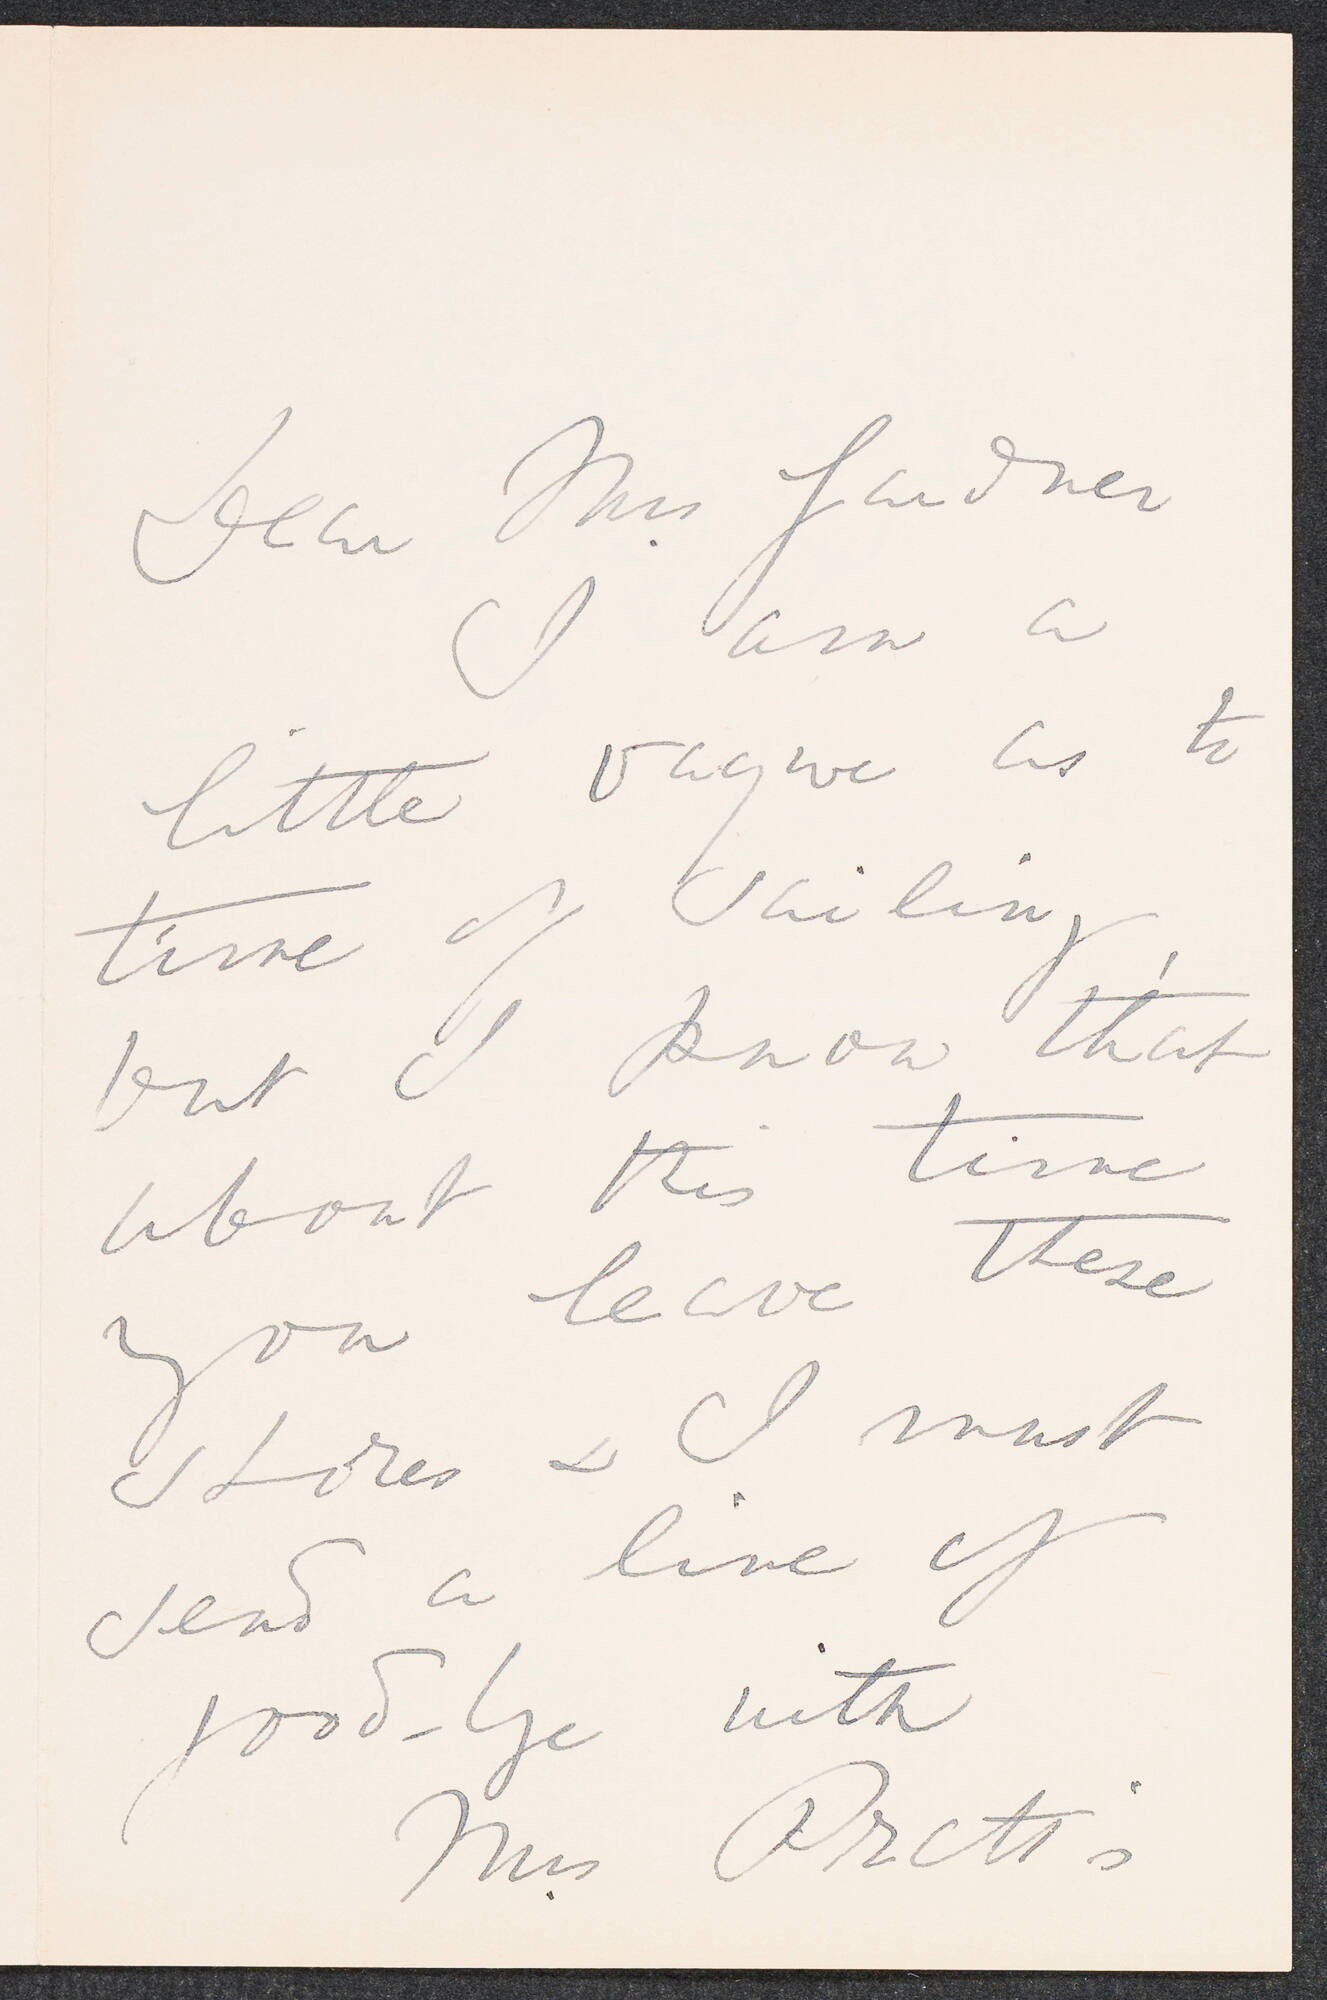 Dear Mrs. Gardner
I am a
little vague as to
time of sailing,
but I know that
about this time
you leave these
shores & I must
send a line of
good-bye with
Mrs. Pratt's